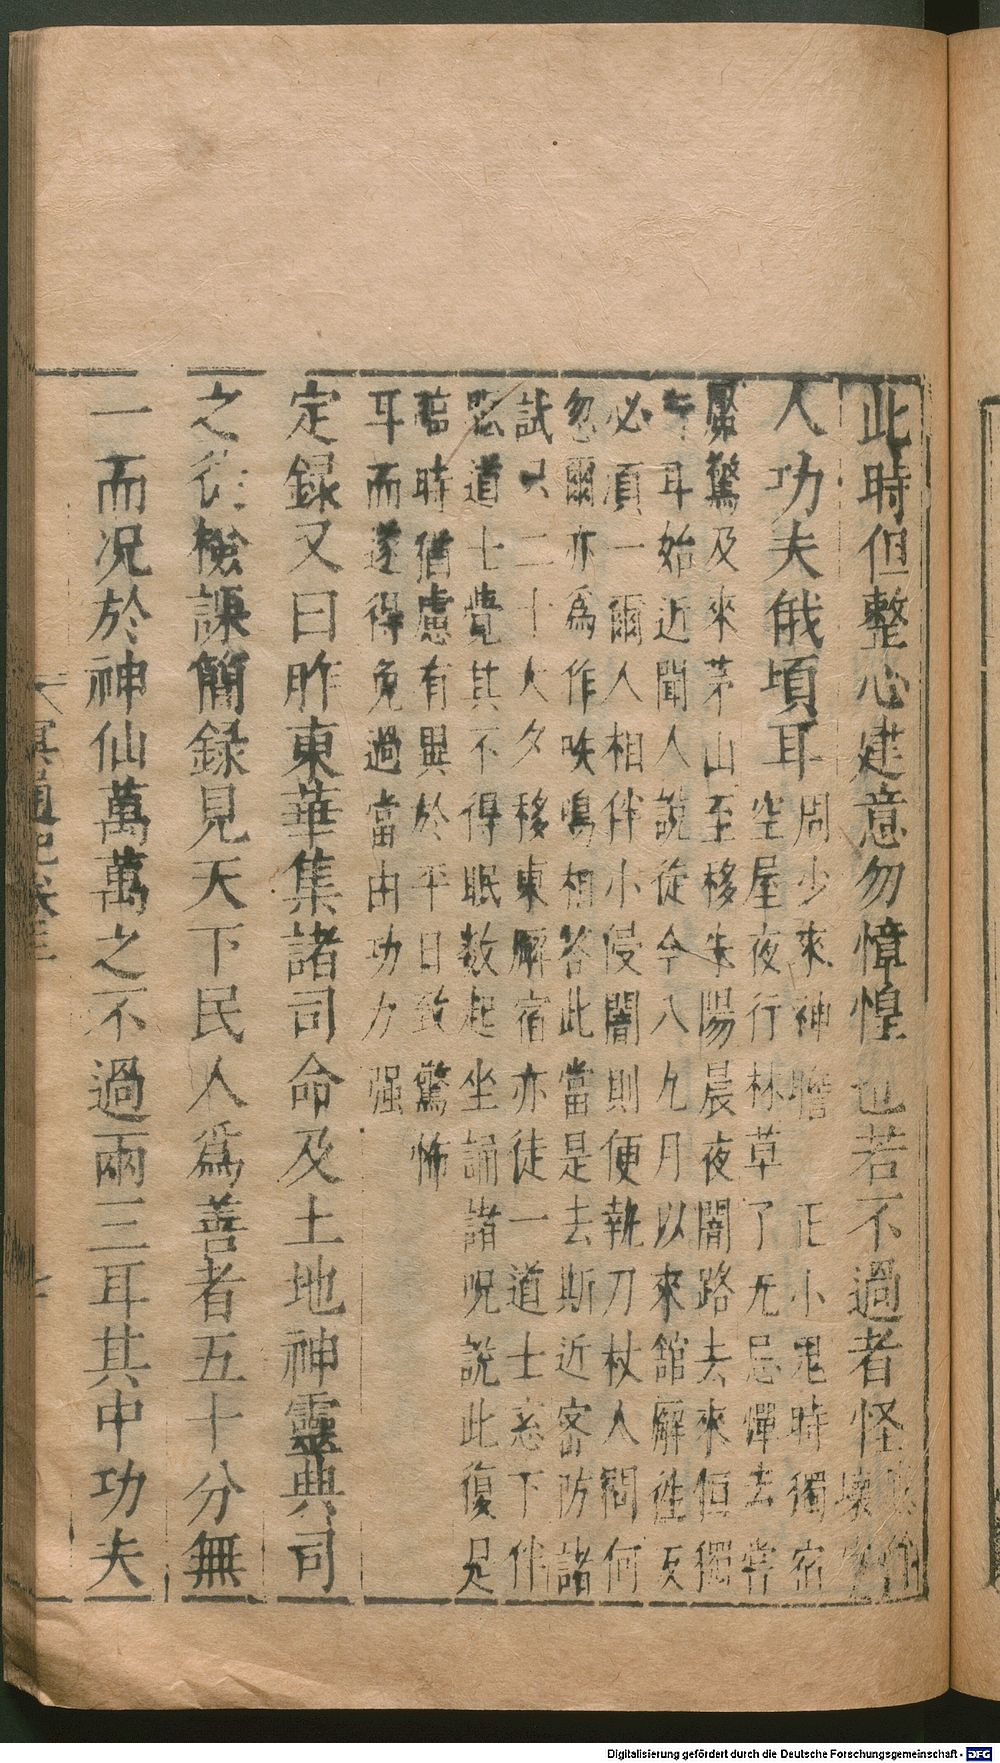 此時但整心建意勿憧惶也若不過者怪
壞
人功夫俄頃耳
周少來神瞻正小鬼時獨宿
空屋夜行林草了无忌憚去嘗
驚及來茅山至移朱陽晨夜闇路去來恒獨
耳始近聞人說從今八九月以來館廨徃反
必須一爾人相伴小侵闇則便執刀杖人問何
忽爾亦為作吷鳴相答此當是去斯近密防諸
試只二十人夕移東廨宿亦徒一道士惹下伴
道士覺其不得眠数起坐誦諸呪說此復是
臨時猶慮有異於平日致驚怖
耳而遂得免過當由功力强
定録又曰昨東華集諸司命及土地神靈典司
之徒檢課簡録見天下民人爲善者五十分無
一而况於神仙萬萬之不過兩三耳其中功夫
冥通記卷三
Digitalisierung gefördert durch die Deutsche Forschungsgemeinschaft - DFG